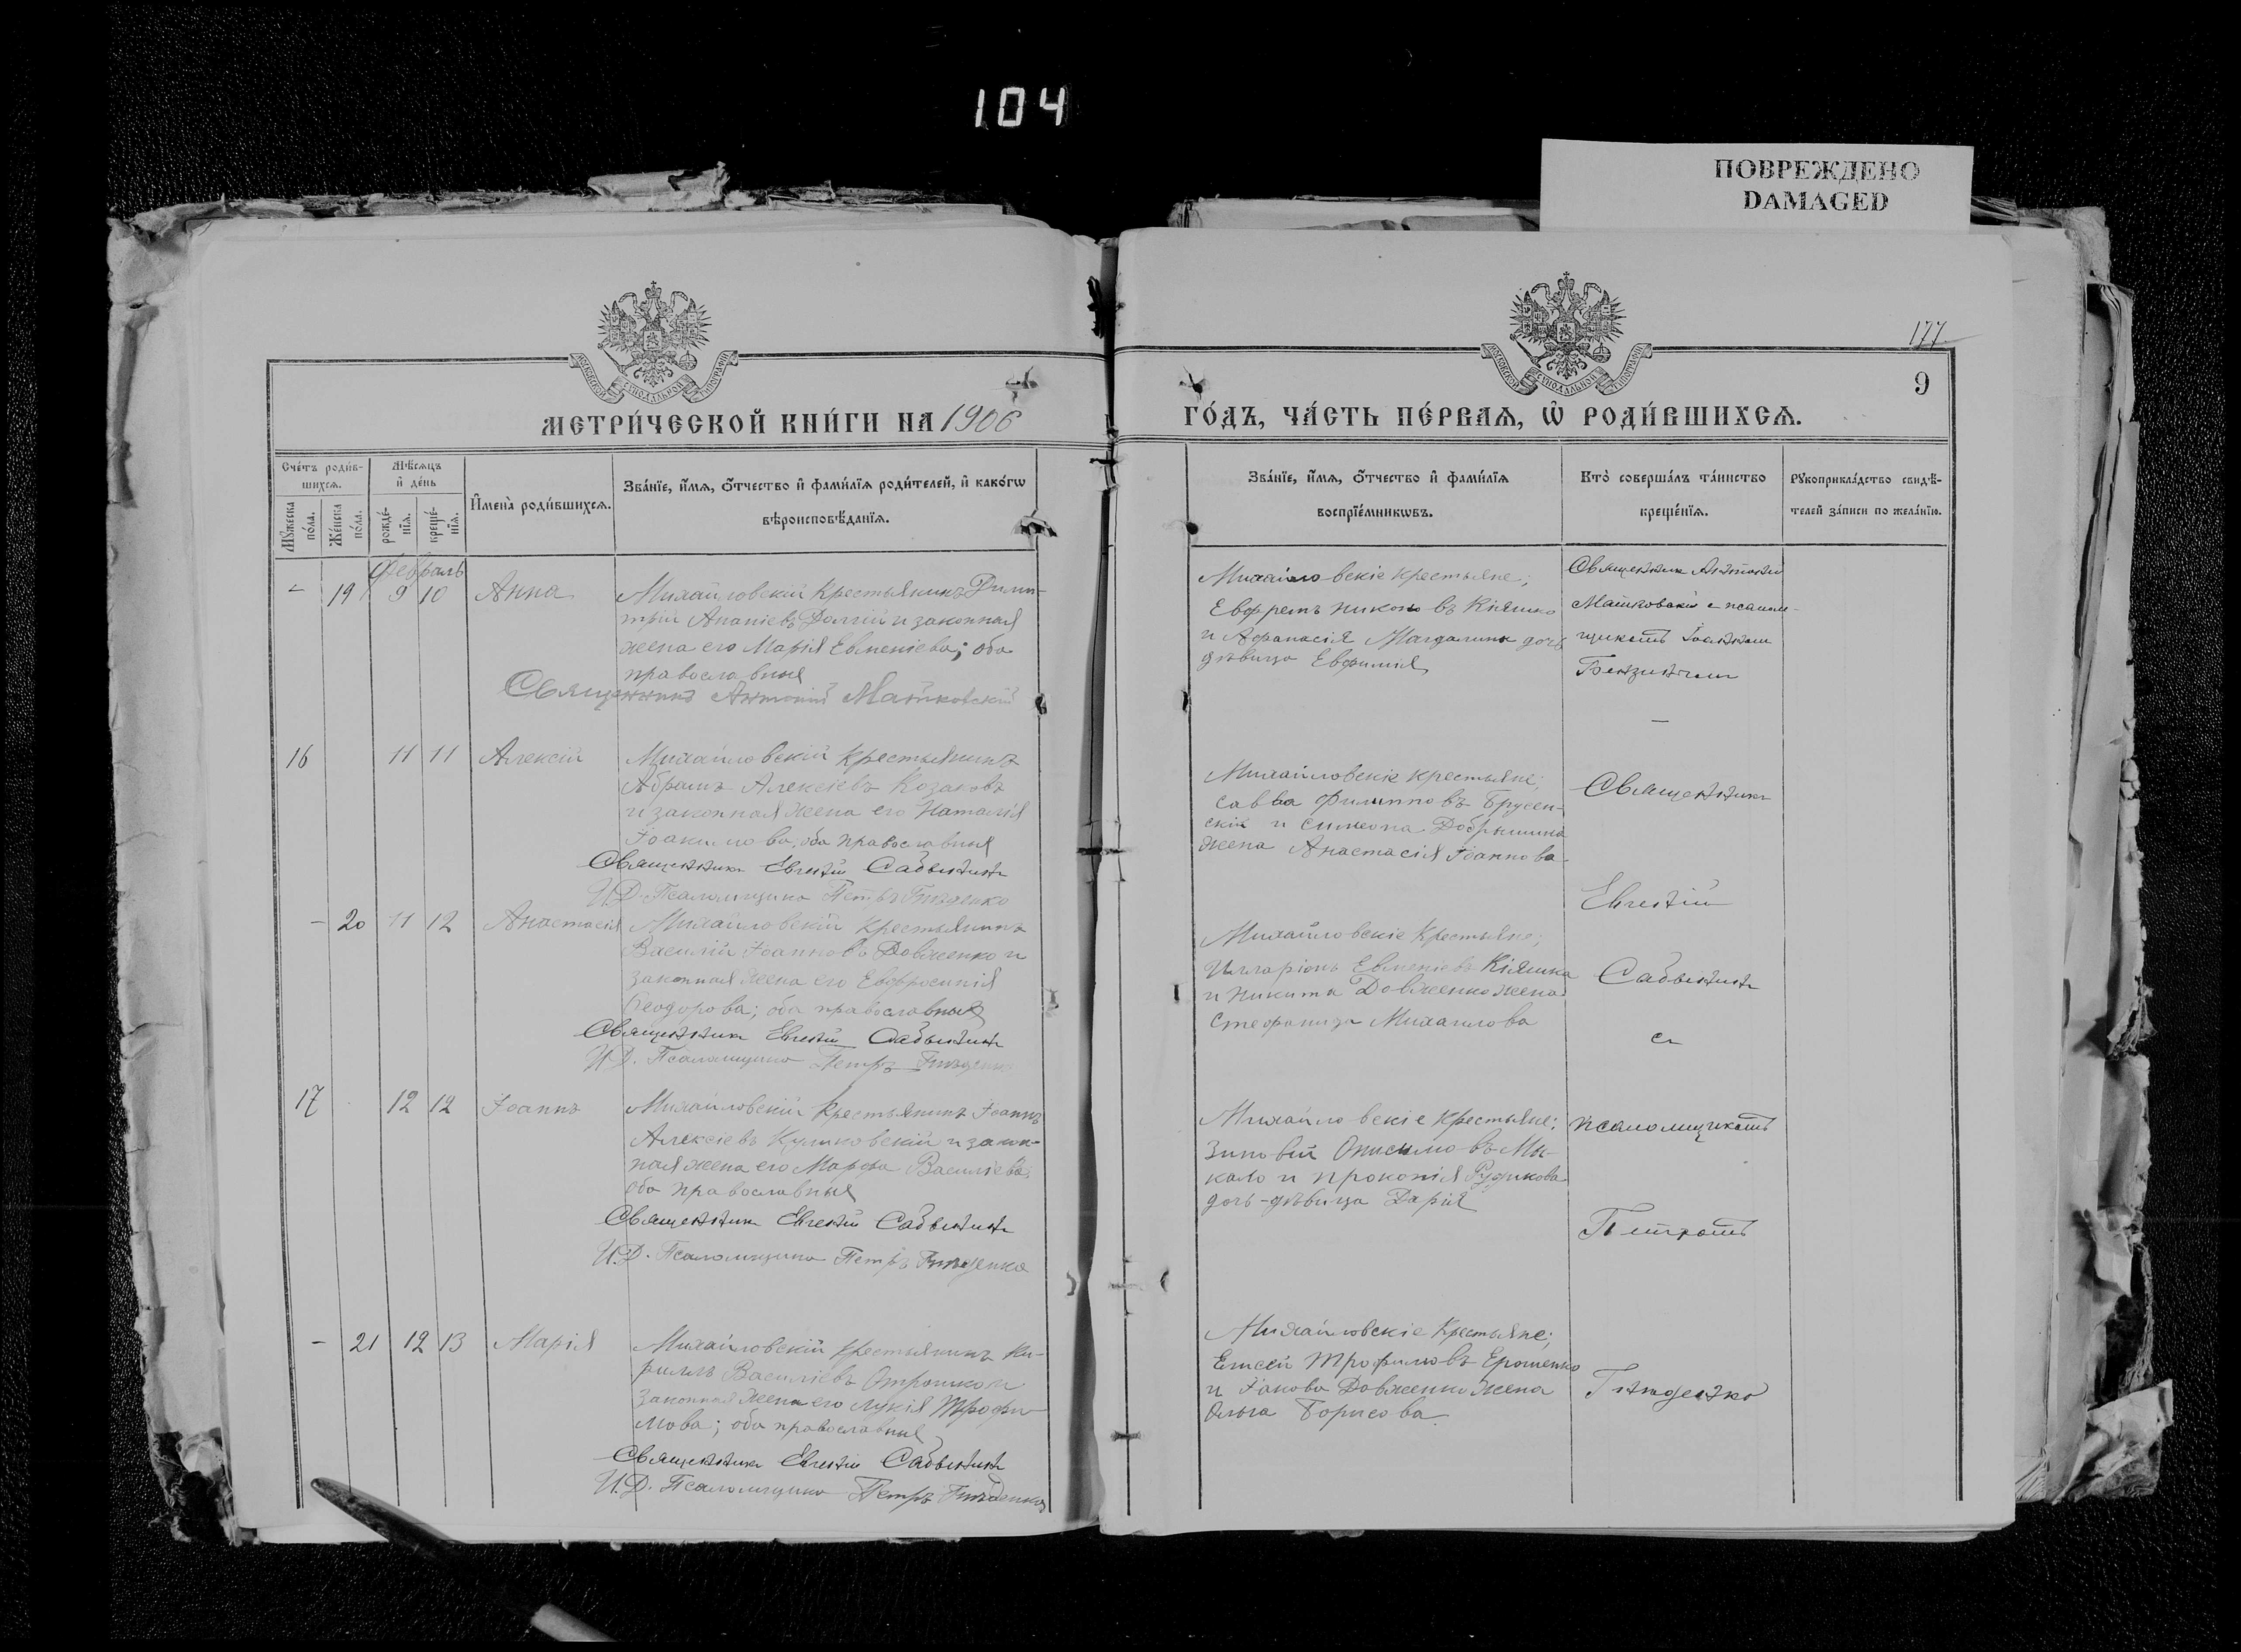 104
ПОВРЕЖДЕНО
DAMAGED
177
9
МОСКОВСКОЙ СѴНОДАЛЬНОЙ ТИПОГРАФІИ
МОСКОВСКОЙ СѴНОДАЛЬНОЙ ТИПОГРАФІИ
МЕТРИ́ЧЕСКОЙ КНИ́ГИ НА 1906
ГО́ДЪ, ЧА́СТЬ ПЕ́РВАЯ, Ѡ҆ РОДИ́ВШИХСЯ.
Сче́тъ роди́в-
шихся.
Мꙋ́жеска по́ла.
Же́нска по́ла.
Мѣ́сяцъ
и҆ де́нь
рожде́-
нїя.
креще́-
нїя.
И҆мена̀ роди́вшихся.
Зва́нїе, и҆́мя, ѻ҆́тчество и҆ фами́лїя роди́телей, и҆ како́гѡ
вѣроисповѣ́данїя.
Зва́нїе, и҆́мя, ѻ҆́тчество и҆ фами́лїя
воспрїе́мникѡвъ.
Кто̀ соверша́лъ та́инство
креще́нїя.
Рꙋкоприкла́дство свидѣ́-
телей за́писи по жела́нїю.
Февраль
- 19 9 10 Анна
Михайловскій крестьянинъ Дими-
трій Ананіевъ Долгій и законная
жена его Марія Евменіева; оба
православныя
Священникъ Антоній Матковскій
Михайловскіе крестьяне;
Евфремъ Никоновъ Кіяшко
и Афанасія Магдалины дочь
дѣвица Евфимія
Священникъ Антоній
Матковскій с псалом-
щикомъ Іоанномъ
16 11 11 Алексій
Михайловскій крестьянинъ
Абрамъ Алексіевъ Козаковъ
и законная жена его Наталія
Іоакимова, оба православныя
Священникъ Евгеній Савинъ
И.Д. Псаломщика Петръ Гнѣденко
Михайловскіе крестьяне;
Савва Филипповъ Брусен-
скій и Симеона Добрышина
жена Анастасія Іоаннова.
Священникъ
Евгеній
- 20 11 12 Анастасія
Михайловскій крестьянинъ
Василій Іоанновъ Довженко и
законная жена его Евфросинія
Ѳеодорова; оба православныя
Священникъ Евгеній
И.Д. Псаломщика Петръ Гнѣденко
Михайловскіе крестьяне;
Илларіонъ Евменіевъ Кіяшка
и Никиты Довженко жена
Стефанида Михаилова
съ
17 12 12 Іоаннъ
Михайловскій крестьянинъ Іоаннъ
Алексіевъ Куликовскій и закон-
ная жена его Марфа Василіева;
оба православныя
Священникъ Евгеній
И.Д. Псаломщика Петръ Гнѣденко
Михайловскіе крестьяне;
Зиновій Онисимовъ Мы-
кало и Прокопія Рудикова
дочь-дѣвица Дарія
псаломщикомъ
Петромъ
- 21 12 13 Марія
Михайловскій крестьянинъ Ки-
риллъ Василіевъ Отрошко и
законная жена его Лукія Трофи-
мова; оба православныя
Священникъ Евгеній
И.Д. Псаломщика Петръ Гнѣденко
Михайловскіе крестьяне;
Елисей Трофимовъ Ерошенко
и Іакова Довженко жена
Ольга Борисова.
Гнѣденко